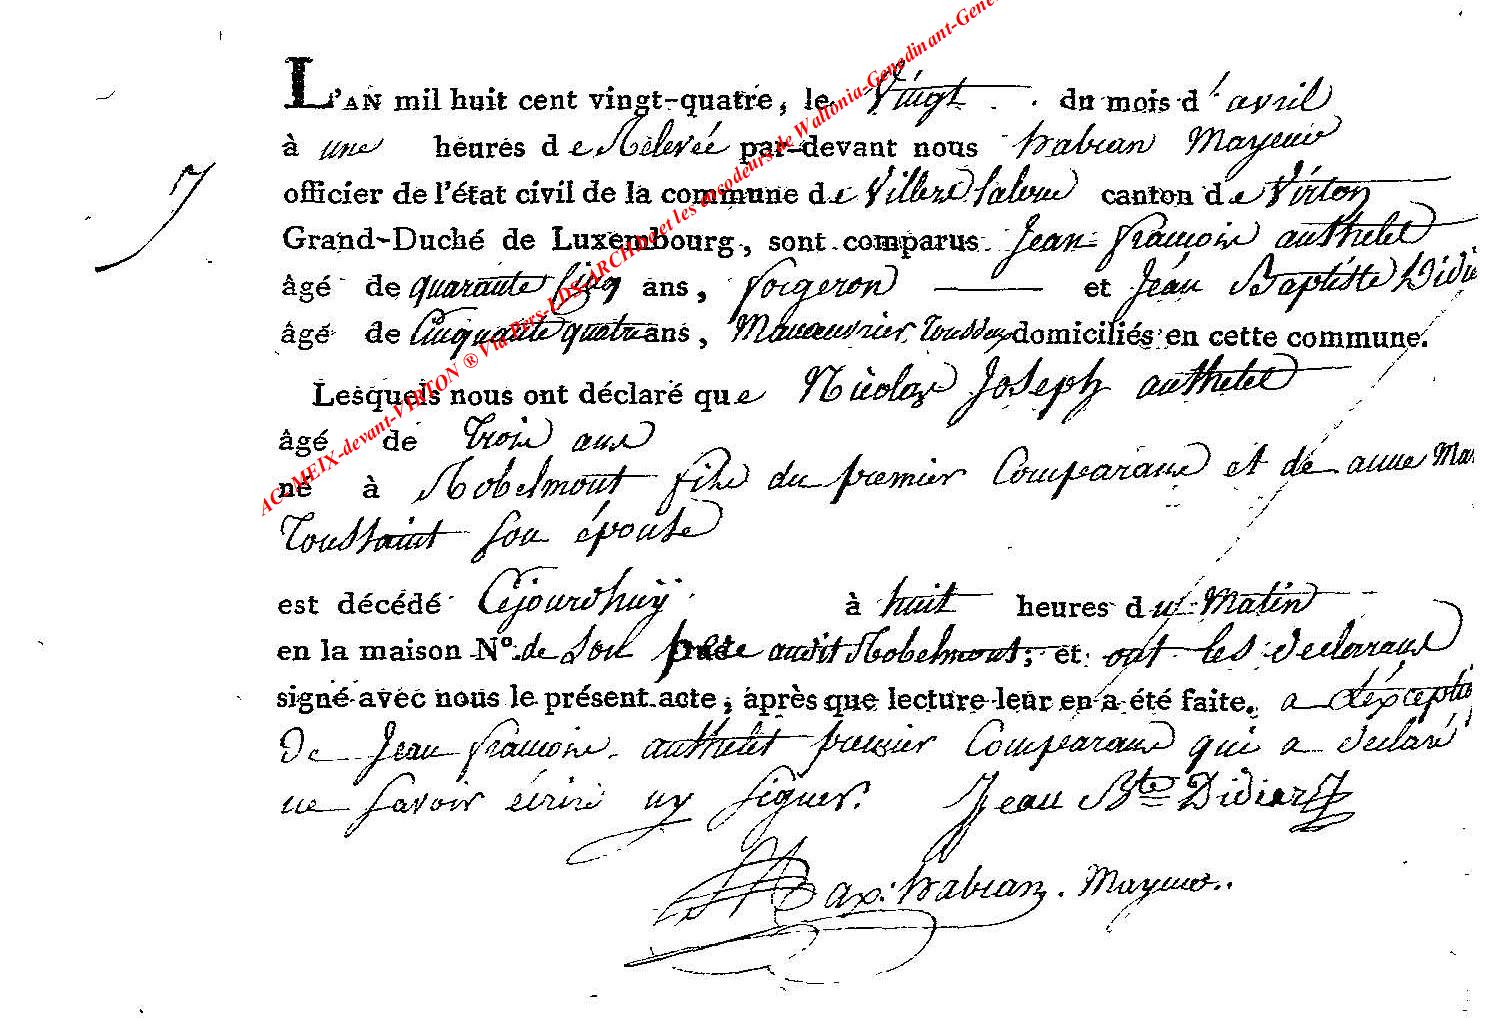 L'AN mil huit cent vingt-quatre, le Vingt du mois d'avril
7
à une heures de Relevée par-devant nous habran Mayeur
officier de l'état civil de la commune de Villers Laloue canton de Virton
Grand-Duché de Luxembourg, sont comparus Jean françois authelet
âgé de quarante Cinq ans, forgeron et Jean Baptiste Didie
âgé de Cinquante quatre ans, Manoeuvrier tous deux domiciliés en cette commune.
Lesquels nous ont déclaré que Nicolas Joseph authelet
âgé de trois ans
né à Robelmont fils du premier Comparant et de anne Mar
Toussaint son épouse
est décédé Cejourdhuÿ à huit heures du Matin
en la maison No. de son père audit Robelmont; et ont les declarans
signé avec nous le présent acte, après que lecture leur en a été faite. a l'exceptio
De Jean françois authelet premier Comparant qui a declaré
ne savoir écrire ny signer. Jean Bte Didier
Max: habran. Mayeur.
AC-MEIX-devant-VIRTON ® Via Pers-LDS-ARCH et les encodeurs de Wallonia-Genedinant-Gene